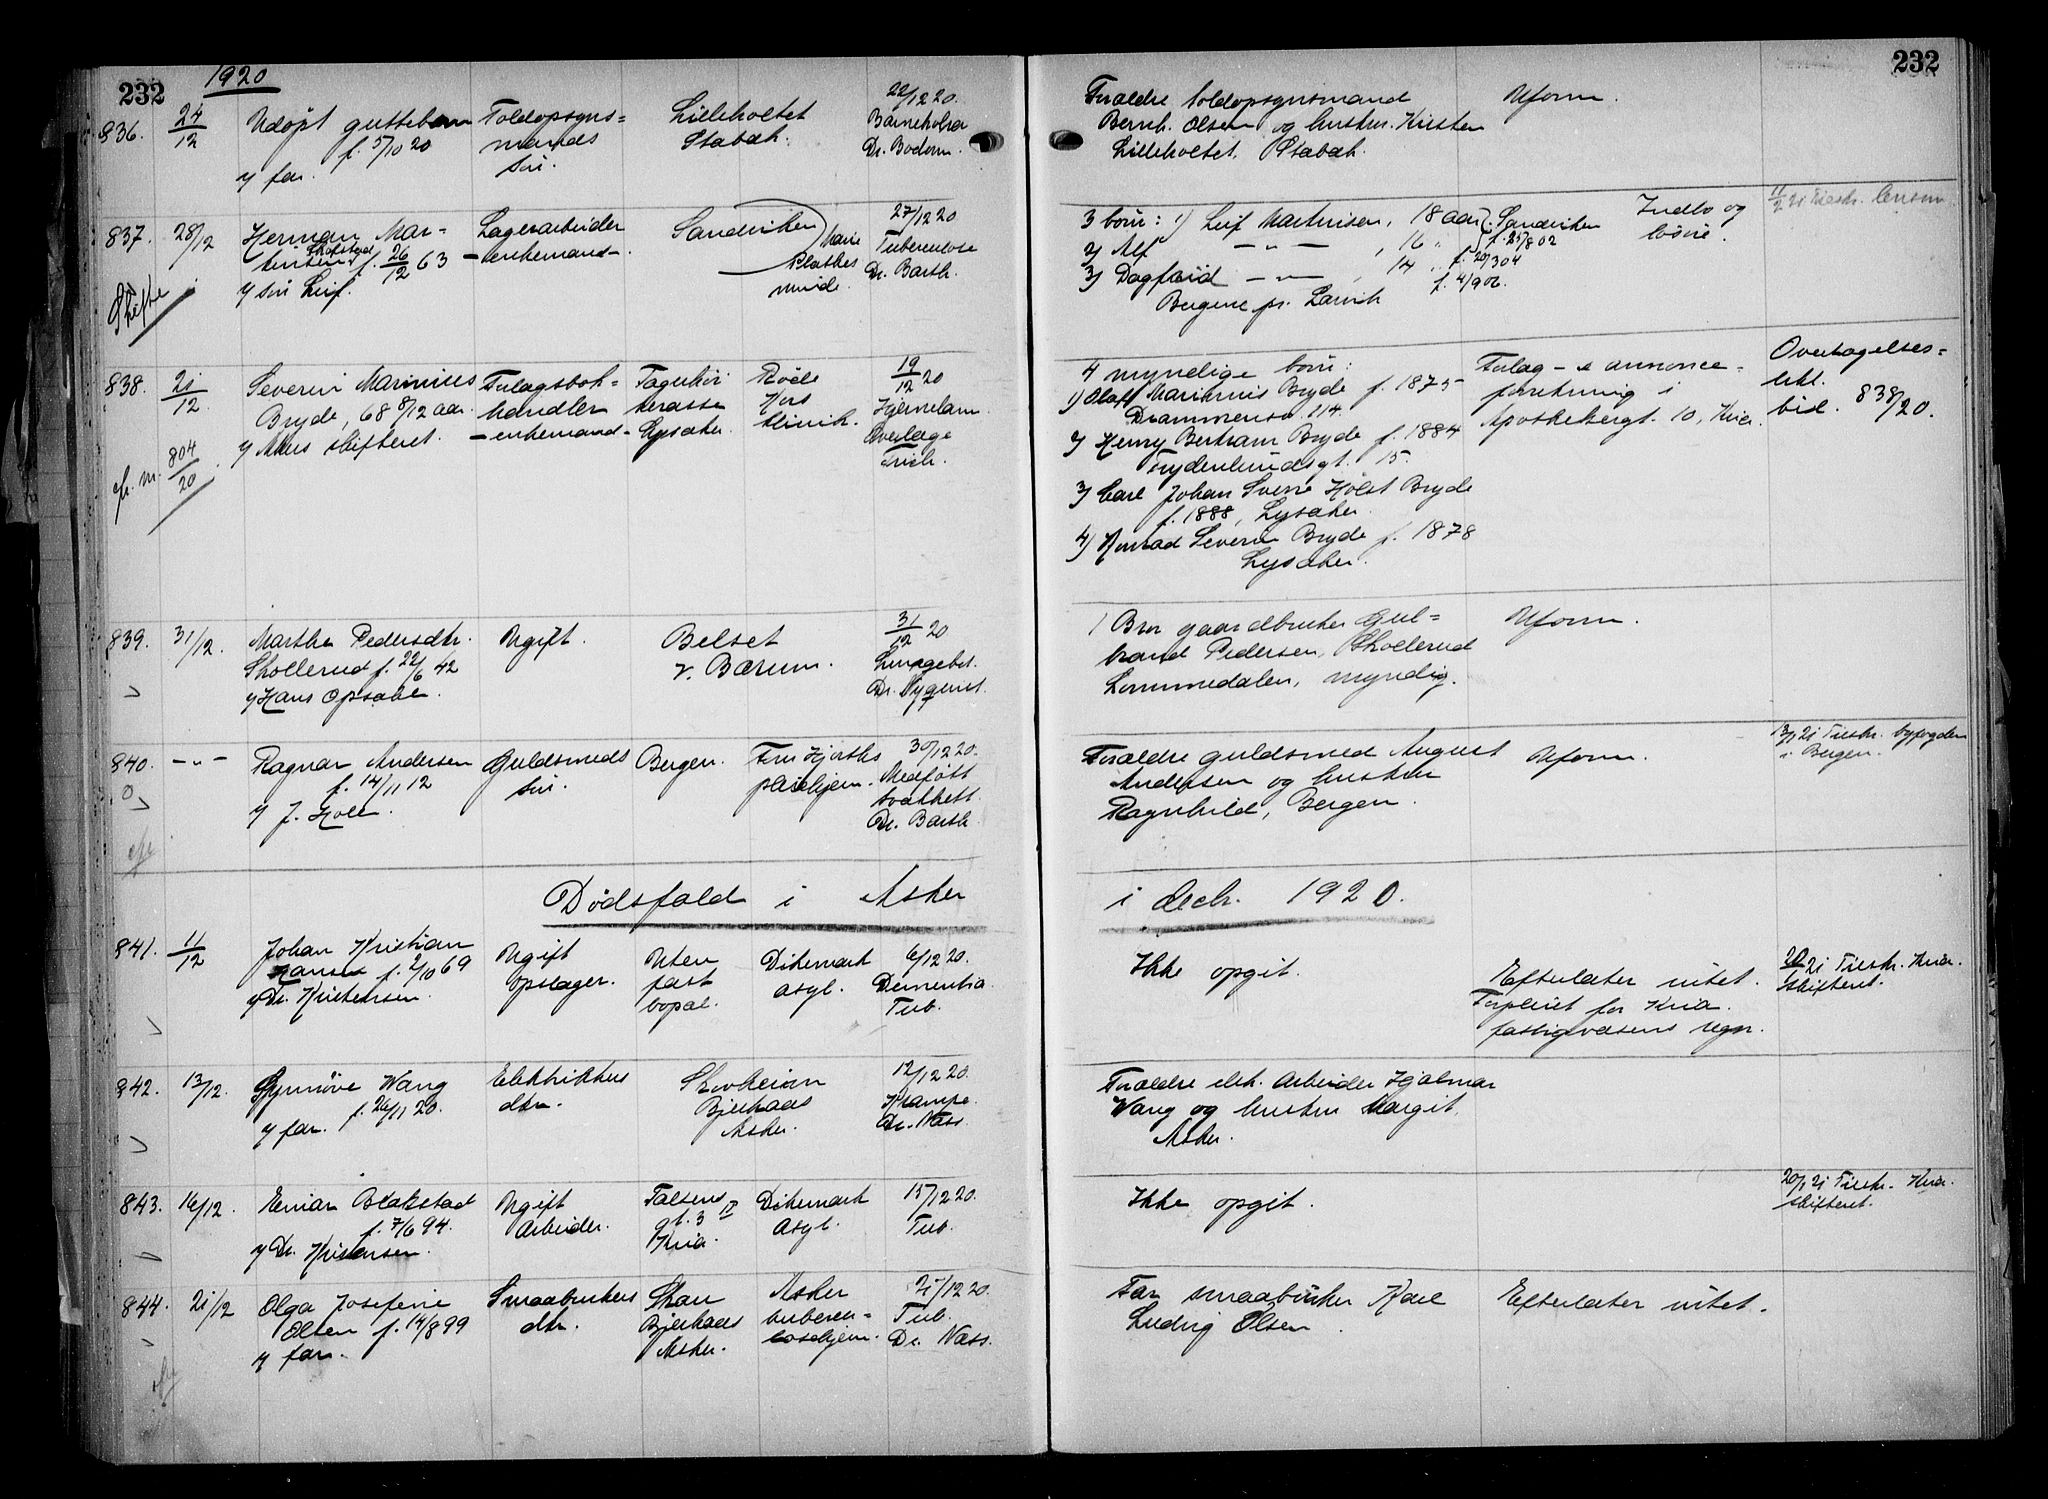 232
1920
836.
24/12
Udöpt guttebarn
f. 5/10 20
v/ far.
Toldopsyns=
mands
sön.
Lilleholtet
Stabæk.
22/12 20.
Dr. Bodom.
837.
28/12
Skifte
Herman Mar-
tinsen f. 26/12 63
v/ sön Leif.
Lagerarbeider
- enkemand -.
Sandviken
Marie
Plathes
minde.
27/12 20
Tuberculose
Dr. Barth.
838.
21/12
cfr. m. 804/20
Severin Marinius
Bryde, 68 8/12 aar.
v/ Akers skifteret.
Forlagsbok=
handler
- enkemand -
Fagerhöi
terasse
Lysaker.
Röde
Kors
klinik.
19/12 20
Hjernelam.
Overlæge
839.
31/12.
Marthe Pedersdtr.
Skollerud f. 22/6 42
v/ Hans Opsahl.
Ugift.
Belset
v. Bærum.
31/12 20
Lungebet.
Dr. Nyquist.
840.
- " -
Ragnar Andersen
f. 14/11 12
v/ J. Holl.
Guldsmeds
sön.
Bergen.
Fru Hjorths
pleiehjem.
30/12 20.
Medfött
svakhett.
Dr. Barth
Dödsfald i Asker
841.
11/12
Johan Kristian
Hansen f. 2/10 69
v/ Dr. Kristensen.
Ugift
opslager.
Uten
fast
bopæl.
Dikemark
asyl.
6/12 20.
Dementia
Tub.
842.
13/12.
Synnöve Wang
f. 26/11 20.
v/ far.
Elektrikkers
dtr.
Skovheim
Bjerkaas
Asker.
12/12 20.
Krampe.
Dr. Næss.
843.
16/12.
Einar Blakstad
f. 7/6 94.
v/ Dr. Kristensen.
Ugift
Arbeider.
Falsens
gt. 3 IV
Kria.
Dikemark
Asyl.
15/12 20.
Tub.
844.
21/12
Olga Josefine
Olsen f. 14/8 99
v/ far.
Smaabrukers
dtr.
Skau
Bjerkaas
Asker.
Asker
tuberku=
losehjem.
21/12 20.
Tub.
Dr. Næss.
232
Forældre toldopsynsmand
Bernh. Olsen og hustru Kirsten
Lilleholtet, Stabæk.
Uform.
3 börn: 1) Leif Martinsen, 18 aar Sandviken
f. 25/8 02
2) Alf - " -, 16 " f. 20/3 04
3) Dagfinn - " -, 14 " f. 4/9 06.
Bergene pr. Larvik
Indbo og
lösöre.
11/2 21 Tilskr. lensm.
4 myndige börn:
1) Olaf Marinius Bryde f. 1875
Drammensv. 114.
2) Henry Bertram Bryde f. 1884
Frydenlundsgt. 15.
3) Carl Johan Sverre Holst Bryde
f. 1888, Lysaker.
4) Konrad Severin Bryde f. 1878
Lysaker.
Forlag - & annonce=
forretning i
Apothekergt. 10, Kria.
Overtagelses=
erkl.
bil. 838/20.
1 Bror gaardbruker Gul=
brand Pedersen, Skollerud
Lommedalen, myndig.
Uform.
Forældre guldsmed August
Andersen og hustru
Ragnhild, Bergen.
Uform.
13/1 21 Tilskr. byfogden
i Bergen.
i decbr. 1920.
Ikke opgit.
Efterlater intet.
Forpleiet for Kria.
fattigvæsens regn.
20/1 21 Tilskr. Kria.
skifteret.
Forældre elek. Arbeider Hjalmar
Wang og hustru Margit,
Asker.
Ikke opgit.
20/1 21 Tilskr. Kria.
skifteret.
Far smaabruker Karl
Ludvig Olsen.
Efterlater intet.